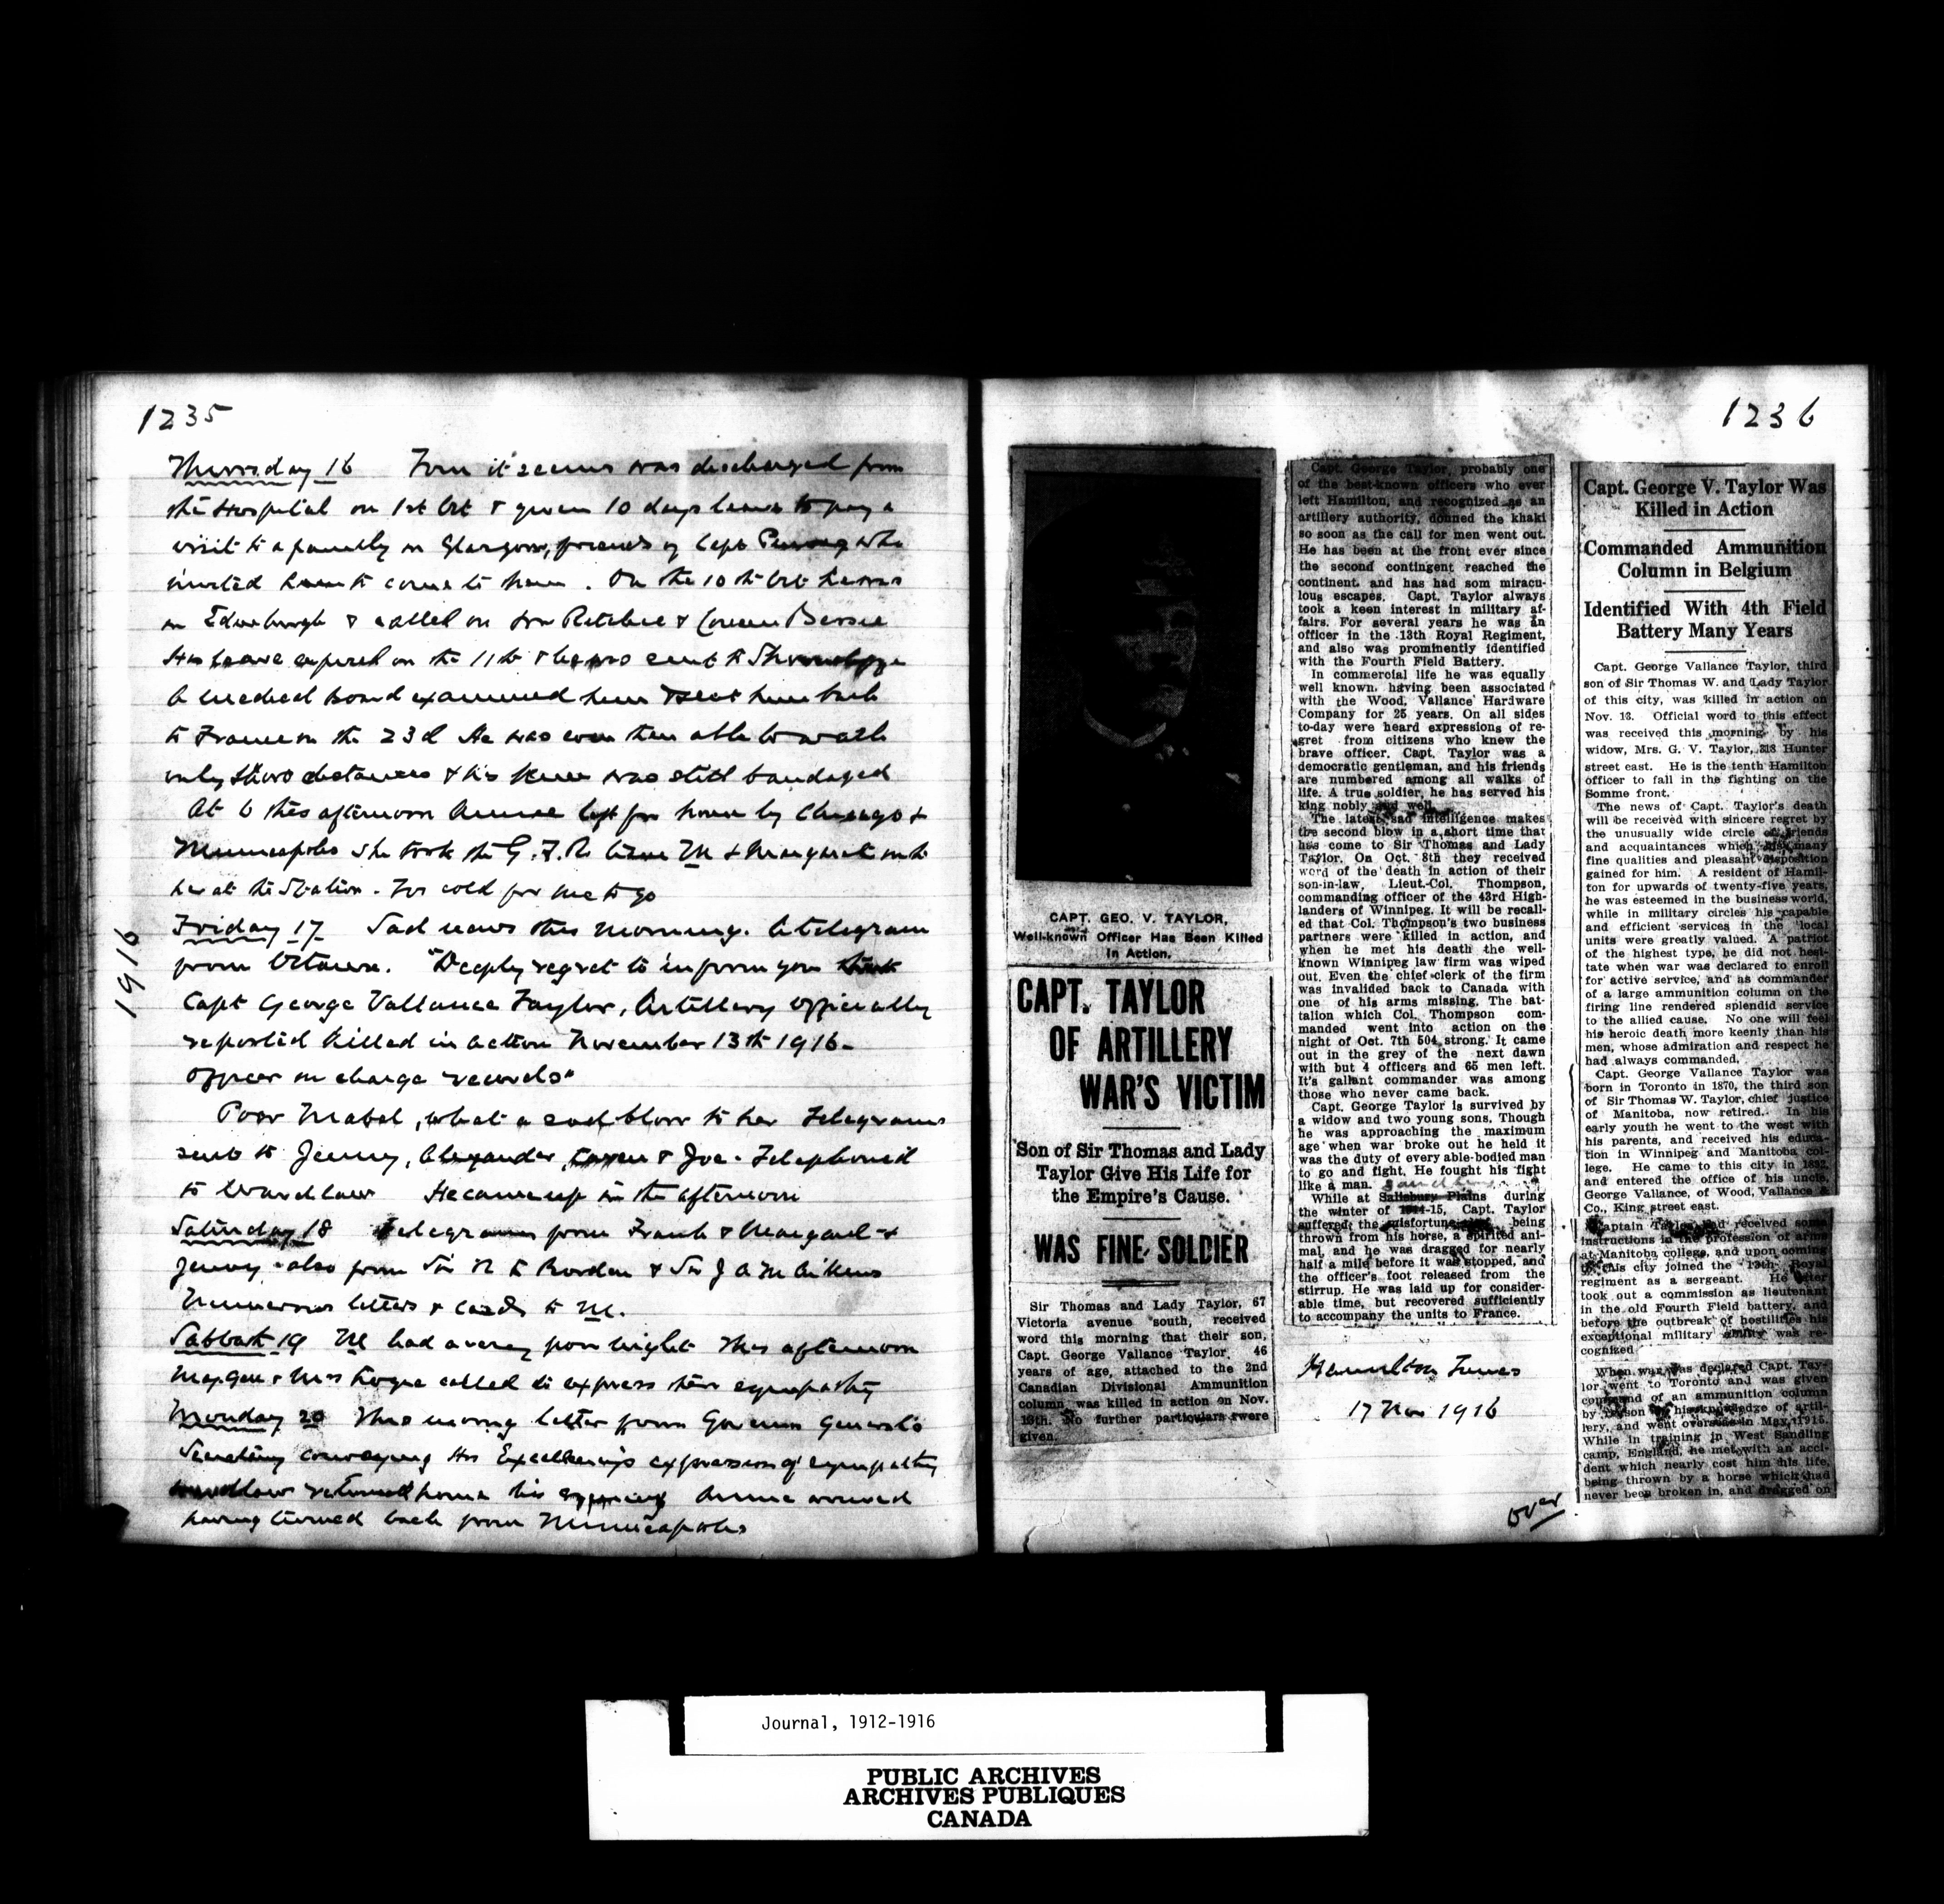 1235
Thursday 16 Tom it seems was discharged from
the Hospital on 1st Oct & given 10 days leave to pay a
visit to a family in Glasgow, friends of Capt who
invited him to come to them. On the 10th Oct he was
in Edinburgh & called on Ritchie & Cousin Bessie
His leave expired on the 11th & he was sent to
A medical Board examined him & sent him back
to France on the 23d He was even then able to walk
only short distances & his knee was still bandaged
At 6 this afternoon Annie left for home by Chicago &
Minneapolis She took the G.T.R. M & Margaret
her at the Station. Too cold for me to go
1916
Friday 17 Sad news this morning. A telegram
from Ottawa. "Deeply regret to inform you
Capt George Vallance Taylor, Artillery officially
reported killed in action November 13th 1916.
Officer in charge records"
Poor Mabel, what a sad blow to her Telegrams
sent to Jenny, Alexander, & Joe. Telephoned
to Wardlaw He came up in the afternoon
Saturday 18 Telegrams from Frank & Margaret &
Jenny also from Sir R L Borden & Sir J A M Aikins
Numerous letters & cards to M.
Sabbath 19 M had a very poor night This afternoon
& Mrs called to express their sympathy
Monday 20 This morning letter from Governor General's
Secretary conveying His Excellency's expression of sympathy
Wardlaw returned home this evening Annie arrived
having turned back from Minneapolis
1236
CAPT. GEO. V. TAYLOR,
Well-known Officer Has Been Killed
in Action.
CAPT. TAYLOR
OF ARTILLERY
WAR'S VICTIM
Son of Sir Thomas and Lady
Taylor Give His Life for
the Empire's Cause.
WAS FINE SOLDIER
Sir Thomas and Lady Taylor, 67
Victoria avenue south, received
word this morning that their son,
Capt. George Vallance Taylor, 46
years of age, attached to the 2nd
Canadian Divisional Ammunition
column was killed in action on Nov.
13th. No further particulars were
given.
Capt. George Taylor, probably one
of the best-known officers who ever
left Hamilton, and recognized as an
artillery authority, donned the khaki
so soon as the call for men went out.
He has been at the front ever since
the second contingent reached the
continent and has had som miracu-
lous escapes. Capt. Taylor always
took a keen interest in military af-
fairs. For several years he was an
officer in the 13th Royal Regiment,
and also was prominently identified
with the Fourth Field Battery.
In commercial life he was equally
well known, having been associated
with the Wood, Vallance Hardware
Company for 25 years. On all sides
to-day were heard expressions of re-
gret from citizens who knew the
brave officer. Capt. Taylor was a
democratic gentleman, and his friends
are numbered among all walks of
life. A true soldier, he has served his
king nobly and well.
The latest sad intelligence makes
the second blow in a short time that
has come to Sir Thomas and Lady
Taylor. On Oct. 8th they received
word of the death in action of their
son-in-law, Lieut.-Col. Thompson,
commanding officer of the 43rd High-
landers of Winnipeg. It will be recall-
ed that Col. Thompson's two business
partners were killed in action, and
when he met his death the well-
known Winnipeg law firm was wiped
out. Even the chief clerk of the firm
was invalided back to Canada with
one of his arms missing. The bat-
talion which Col. Thompson com-
manded went into action on the
night of Oct. 7th 504 strong. It came
out in the grey of the next dawn
with but 4 officers and 65 men left.
It's gallant commander was among
those who never came back.
Capt. George Taylor is survived by
a widow and two young sons. Though
he was approaching the maximum
age when war broke out he held it
was the duty of every able-bodied man
to go and fight. He fought his fight
like a man.
While at Salisbury Plains during
the winter of 1914-15, Capt. Taylor
suffered the misfortune being
thrown from his horse, a spirited ani-
mal, and he was dragged for nearly
half a mile before it was stopped, and
the officer's foot released from the
stirrup. He was laid up for consider-
able time, but recovered sufficiently
to accompany the units to France.
Hamilton Times
17 Nov 1916
Capt. George V. Taylor Was
Killed in Action
Commanded Ammunition
Column in Belgium
Identified With 4th Field
Battery Many Years
Capt. George Vallance Taylor, third
son of Sir Thomas W. and Lady Taylor
of this city, was killed in action on
Nov. 13. Official word to this effect
was received this morning by his
widow, Mrs. G. V. Taylor, 318 Hunter
street east. He is the tenth Hamilton
officer to fall in the fighting on the
Somme front.
The news of Capt. Taylor's death
will be received with sincere regret by
the unusually wide circle of friends
and acquaintances which his many
fine qualities and pleasant disposition
gained for him. A resident of Hamil-
ton for upwards of twenty-five years,
he was esteemed in the business world,
while in military circles his capable
and efficient services in the local
units were greatly valued. A patriot
of the highest type, he did not hesi-
tate when war was declared to enroll
for active service, and as commander
of a large ammunition column on the
firing line rendered splendid service
to the allied cause. No one will feel
his heroic death more keenly than his
men, whose admiration and respect he
had always commanded.
Capt. George Vallance Taylor was
born in Toronto in 1870, the third son
of Sir Thomas W. Taylor, chief justice
of Manitoba, now retired. In his
early youth he went to the west with
his parents, and received his educa-
tion in Winnipeg and Manitoba col-
lege. He came to this city in 1892,
and entered the office of his uncle,
George Vallance, of Wood, Vallance &
Co., King street east.
Captain Taylor had received some
instructions in the profession of arms
at Manitoba college, and upon coming
to this city joined the 13th Royal
regiment as a sergeant. He later
took out a commission as lieutenant
in the old Fourth Field battery, and
before the outbreak of hostilities his
exceptional military ability was re-
cognized
When war was declared Capt. Tay-
lor went to Toronto and was given
command of an ammunition column
by reason of his knowledge of artil-
lery, and went overseas in May, 1915.
While in training in West Sandling
camp, England, he met with an acci-
dent which nearly cost him his life,
being thrown by a horse which had
never been broken in, and dragged on
over
Journal, 1912-1916
PUBLIC ARCHIVES
ARCHIVES PUBLIQUES
CANADA